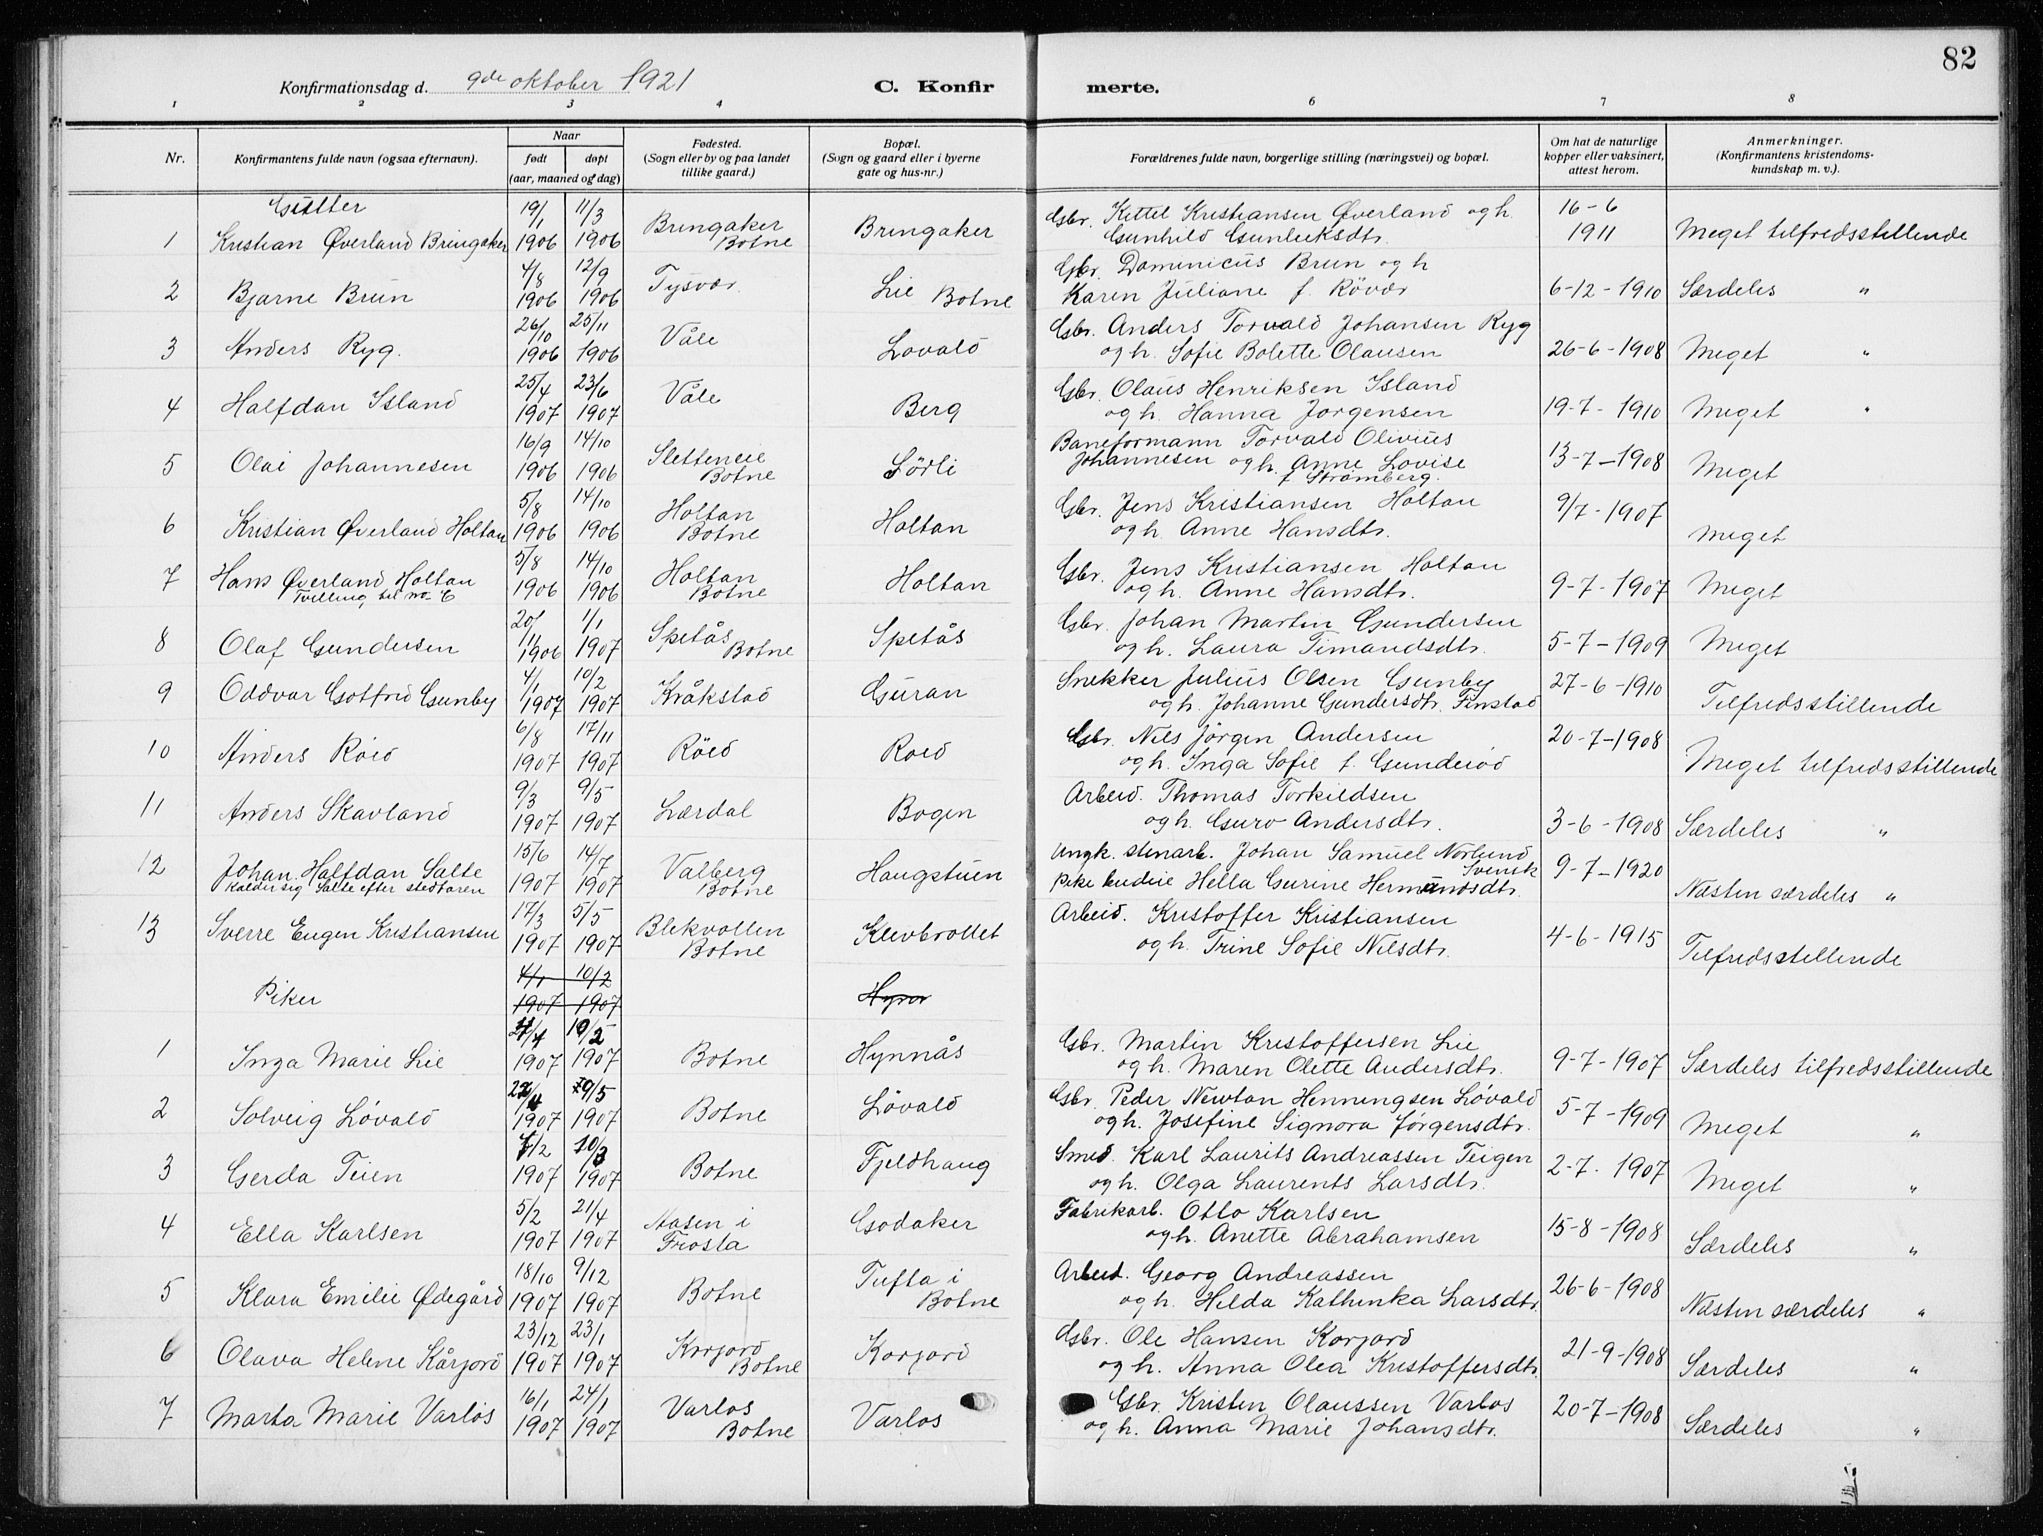 82
Konfirmationsdag d. 9de oktober 1921
C. Konfirmerte.
1 2 3 4 6 7 8
Nr. | Konfirmantens fulde navn (ogsaa efternavn). | Naar født | døpt (aar, maaned og dag) | Fødested. (Sogn eller by og paa landet tillike gaard.) | Bopæl. (Sogn og gaard eller i byerne gate og hus-nr.) | Forældrenes fulde navn, borgerlige stilling (næringsvei) og bopæl. | Om hat de naturlige kopper eller vaksinert, attest herom. | Anmerkninger. (Konfirmantens kristendomskundskap m. v.).
Gutter
1 | Kristian Øverland Bringaker | 19/1 1906 | 11/3 1906 | Bringaker Botne | Bringaker | Gbr. Kittel Kristiansen Øverland og h. Gunhild Gunleiksdtr. | 16-6 1911 | Meget tilfredsstillende
2 | Bjarne Brun | 4/8 1906 | 12/9 1906 | Tysvær | Lie Botne | Gbr. Dominicus Brun og h Karen Juliane f. Røvær | 6-12-1910 | Særdeles "
3 | Anders Ryg. | 26/10 1906 | 25/11 1906 | Våle | Lovald | Gbr. Anders Torvald Johansen Ryg og h. Sofie Bolette Olausen | 26-6-1908 | Meget "
4 | Halfdan Island | 25/4 1907 | 23/6 1907 | Våle | Berg | Gbr. Olaus Henriksen Island og h. Hanna Jorgensen | 19-7-1910 | Meget "
5 | Olai Johannesen | 16/9 1906 | 14/10 1906 | Sletteneie Botne | Lörli | Baneformann Torvald Olivius Johannesen og h. Anne Lovise f. Strømberg. | 13-7-1908 | Meget
6 | Kristian Øverland Holtan | 5/8 1906 | 14/10 1906 | Holtan Botne | Holtan | Gbr. Jens Kristiansen Holtan og h. Anne Hansdtr. | 9/7-1907 | Meget
7 | Hans Øverland Holtan Tvilling til no. 6 | 5/8 1906 | 14/10 1906 | Holtan Botne | Holtan | Gbr. Jens Kristiansen Holtan og h. Anne Hansdtr. | 9-7-1907 | Meget
8 | Olaf Gundersen | 20/11 1906 | 1/1 1907 | Spetås Botne | Spetås | Gbr. Johan Martin Gundersen og h. Laura Timandsdtr. | 5-7-1909 | Meget
9 | Oddvar Gotfrid Gunby | 4/1 1907 | 10/2 1907 | Kråkstad | Guran | Snekker Julius Olsen Gunby og h. Johanne Gundersdtr. Finstad | 27-6-1910 | Tilfredsstillende
10 | Anders Röed | 6/8 1907 | 17/11 1907 | Röed | Roed | Gbr. Nils Jörgen Andersen og h. Inga Sofie f. Gunderöd | 20-7-1908 | Meget tilfredsstillende
11 | Anders Skavland | 9/3 1907 | 9/5 1907 | Lærdal | Bogen | Arbeid. Thomas Torkildsen og h. Guro Andersdtr. | 3-6-1908 | Særdeles "
12 | Johan Halfdan Salte Kalder sig Salte efter stedfaren | 15/6 1907 | 14/7 1907 | Valberg Botne | Haugstuen | Ungk. stenarb. Johan Samuel Norlund Svensk pike budeie Hella Gurine Hermundsdtr. | 9-7-1920 | Næsten særdeles "
13 | Sverre Eugen Kristiansen | 17/3 1907 | 5/5 1907 | Blekvollen Botne | Klevbrottet | Arbeid. Kristoffer Kristiansen og h. Trine Sofie Nilsdtr. | 4-6-1915 | Tilfredsstillende
Piker | 4/1 1907 | 10/2 1907
1 | Inga Marie Lie | 1907 | 1907 | Botne | Hynnås | Gbr. Martin Kristoffersen Lie og h. Maren Olette Andersdtr. | 9-7-1907 | Særdeles tilfredsstillende
2 | Solveig Lövald | 1907 | 1907 | Botne | Lövald | Gbr. Peder Newton Henningsen Lövald og h. Josefine Signora Jörgensdtr. | 5-7-1909 | Meget "
3 | Gerda Teien | 1907 | 1907 | Botne | Fjeldhaug | Smed. Karl Laurits Andreassen Teigen og h. Olga Laurents Larsdtr. | 2-7-1907 | Meget "
4 | Ella Karlsen | 5/2 1907 | 21/4 1907 | Aasen i Frosta | Godaker | Fabrikarb. Otto Karlsen og h. Anette Abrahamsen | 15-8-1908 | Særdeles "
5 | Klara Emilie Ødegård | 18/10 1907 | 9/12 1907 | Botne | Tufta i Botne | Arbeid. Georg Andreassen og h. Hilda Kathinka Larsdtr. | 26-6-1908 | Næsten særdeles "
6 | Olava Helene Kårjord | 23/12 1907 | 23/1 1907 | Korjord Botne | Korjord | Gbr. Ole Hansen Korjord og h. Anna Olea Kristoffersdtr. | 21-9-1908 | Særdeles "
7 | Marta Marie Varlös | 16/1 1907 | 24/1 1907 | Varlos Botne | Varlos | Gbr. Kristen Olaussen Varlos og h. Anna Marie Johansdtr. | 20-7-1908 | Særdeles "